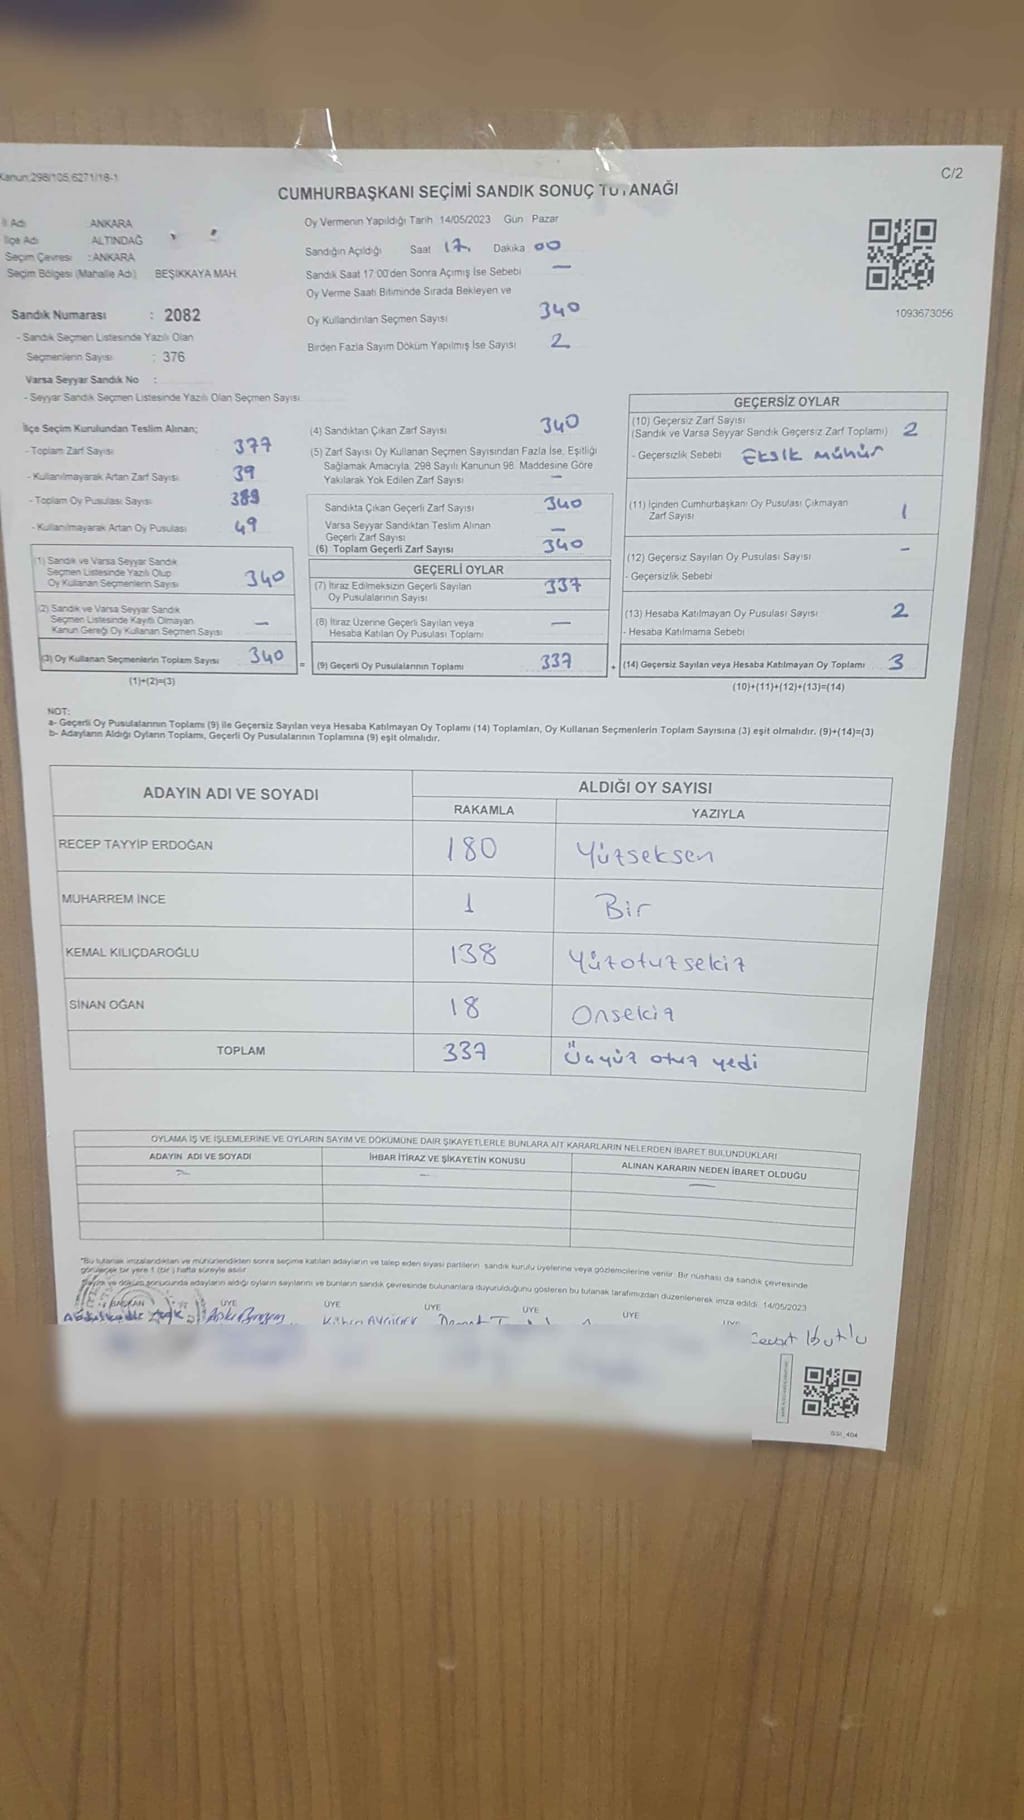 Kanun:298/105,6271/18-1
C/2
CUMHURBAŞKANI SEÇİMİ SANDIK SONUÇ TUTANAĞI
İl Adı : ANKARA
İlçe Adı : ALTINDAĞ
Seçim Çevresi : ANKARA
Seçim Bölgesi (Mahalle Adı) BEŞİKKAYA MAH.
Sandık Numarası : 2082
- Sandık Seçmen Listesinde Yazılı Olan
Seçmenlerin Sayısı : 376
Varsa Seyyar Sandık No :
- Seyyar Sandık Seçmen Listesinde Yazılı Olan Seçmen Sayısı
Oy Vermenin Yapıldığı Tarih 14/05/2023 Gün Pazar
Sandığın Açıldığı Saat 17 Dakika 00
Sandık Saat 17:00'den Sonra Açımış İse Sebebi —
Oy Verme Saati Bitiminde Sırada Bekleyen ve
Oy Kullandırılan Seçmen Sayısı 340
Birden Fazla Sayım Döküm Yapılmış İse Sayısı 2
1093673056
İlçe Seçim Kurulundan Teslim Alınan;
- Toplam Zarf Sayısı 377
- Kullanılmayarak Artan Zarf Sayısı 39
- Toplam Oy Pusulası Sayısı 389
- Kullanılmayarak Artan Oy Pusulası 49
(1) Sandık ve Varsa Seyyar Sandık
Seçmen Listesinde Yazılı Olup
Oy Kullanan Seçmenlerin Sayısı 340
(2) Sandık ve Varsa Seyyar Sandık
Seçmen Listesinde Kayıtlı Olmayan
Kanun Gereği Oy Kullanan Seçmen Sayısı —
(3) Oy Kullanan Seçmenlerin Toplam Sayısı 340
(1)+(2)=(3)
(4) Sandıktan Çıkan Zarf Sayısı 340
(5) Zarf Sayısı Oy Kullanan Seçmen Sayısından Fazla İse, Eşitliği
Sağlamak Amacıyla, 298 Sayılı Kanunun 98. Maddesine Göre
Yakılarak Yok Edilen Zarf Sayısı —
Sandıkta Çıkan Geçerli Zarf Sayısı 340
Varsa Seyyar Sandıktan Teslim Alınan
Geçerli Zarf Sayısı —
(6) Toplam Geçerli Zarf Sayısı 340
GEÇERLİ OYLAR
(7) İtiraz Edilmeksizin Geçerli Sayılan
Oy Pusulalarının Sayısı 337
(8) İtiraz Üzerine Geçerli Sayılan veya
Hesaba Katılan Oy Pusulası Toplamı —
= (9) Geçerli Oy Pusulalarının Toplamı 337 +
GEÇERSİZ OYLAR
(10) Geçersiz Zarf Sayısı
(Sandık ve Varsa Seyyar Sandık Geçersiz Zarf Toplamı) 2
- Geçersizlik Sebebi EKSİK MÜHÜR
(11) İçinden Cumhurbaşkanı Oy Pusulası Çıkmayan
Zarf Sayısı 1
(12) Geçersiz Sayılan Oy Pusulası Sayısı —
- Geçersizlik Sebebi
(13) Hesaba Katılmayan Oy Pusulası Sayısı 2
- Hesaba Katılmama Sebebi
(14) Geçersiz Sayılan veya Hesaba Katılmayan Oy Toplamı 3
(10)+(11)+(12)+(13)=(14)
NOT:
a- Geçerli Oy Pusulalarının Toplamı (9) ile Geçersiz Sayılan veya Hesaba Katılmayan Oy Toplamı (14) Toplamları, Oy Kullanan Seçmenlerin Toplam Sayısına (3) eşit olmalıdır. (9)+(14)=(3)
b- Adayların Aldığı Oyların Toplamı, Geçerli Oy Pusulalarının Toplamına (9) eşit olmalıdır.
ADAYIN ADI VE SOYADI
ALDIĞI OY SAYISI
RAKAMLA YAZIYLA
RECEP TAYYİP ERDOĞAN 180 Yüzseksen
MUHARREM İNCE 1 Bir
KEMAL KILIÇDAROĞLU 138 Yüzotuzsekiz
SİNAN OĞAN 18 Onsekiz
TOPLAM 337 Üçyüz otuz yedi
OYLAMA İŞ VE İŞLEMLERİNE VE OYLARIN SAYIM VE DÖKÜMÜNE DAİR ŞİKAYETLERLE BUNLARA AİT KARARLARIN NELERDEN İBARET BULUNDUKLARI
ADAYIN ADI VE SOYADI İHBAR İTİRAZ VE ŞİKAYETİN KONUSU ALINAN KARARIN NEDEN İBARET OLDUĞU
— — —
*Bu tutanak imzalandıktan ve mühürlendikten sonra seçime katılan adayların ve talep eden siyasi partilerin sandık kurulu üyelerine veya gözlemcilerine verilir. Bir nüshası da sandık çevresinde
görülecek bir yere 1 (bir) hafta süreyle asılır.
Sayım ve döküm sonucunda adayların aldığı oyların sayılarını ve bunların sandık çevresinde bulunanlara duyurulduğunu gösteren bu tutanak tarafımızdan düzenlenerek imza edildi. 14/05/2023
BAŞKAN ÜYE ÜYE ÜYE ÜYE ÜYE